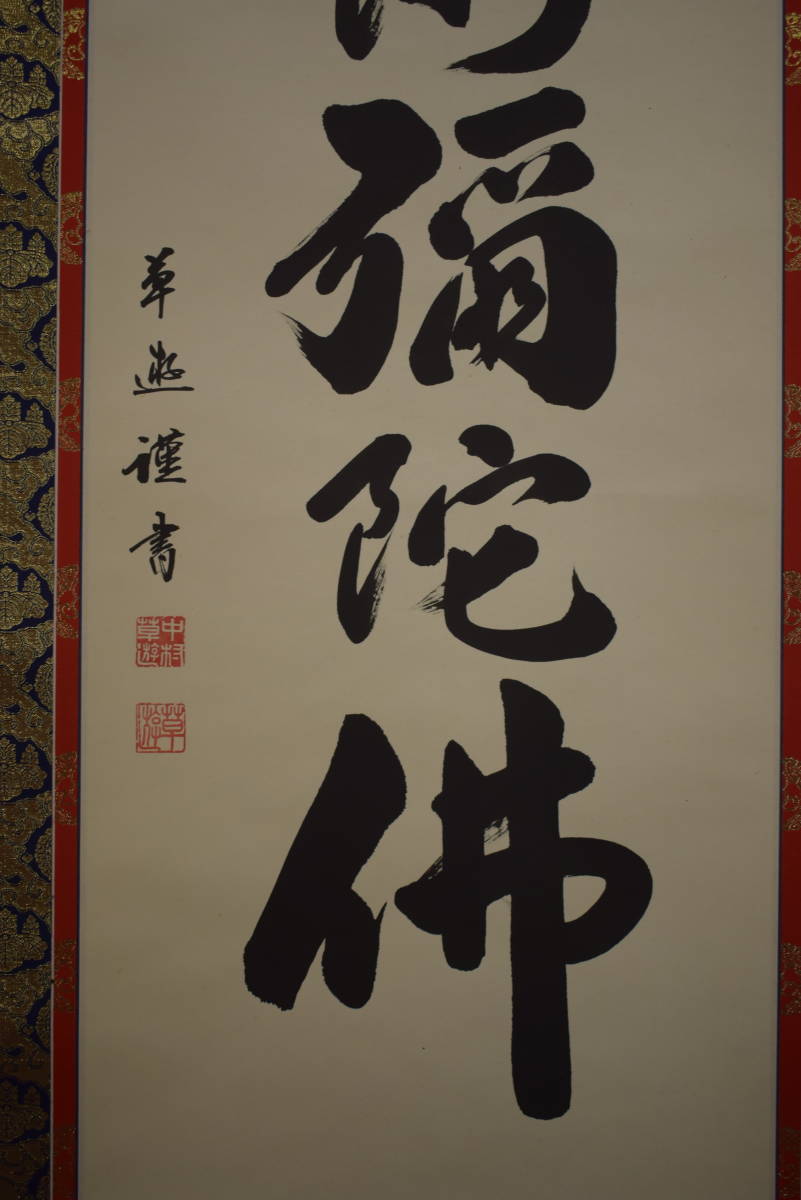 彌陀佛
草遊謹書
中村草遊
草遊